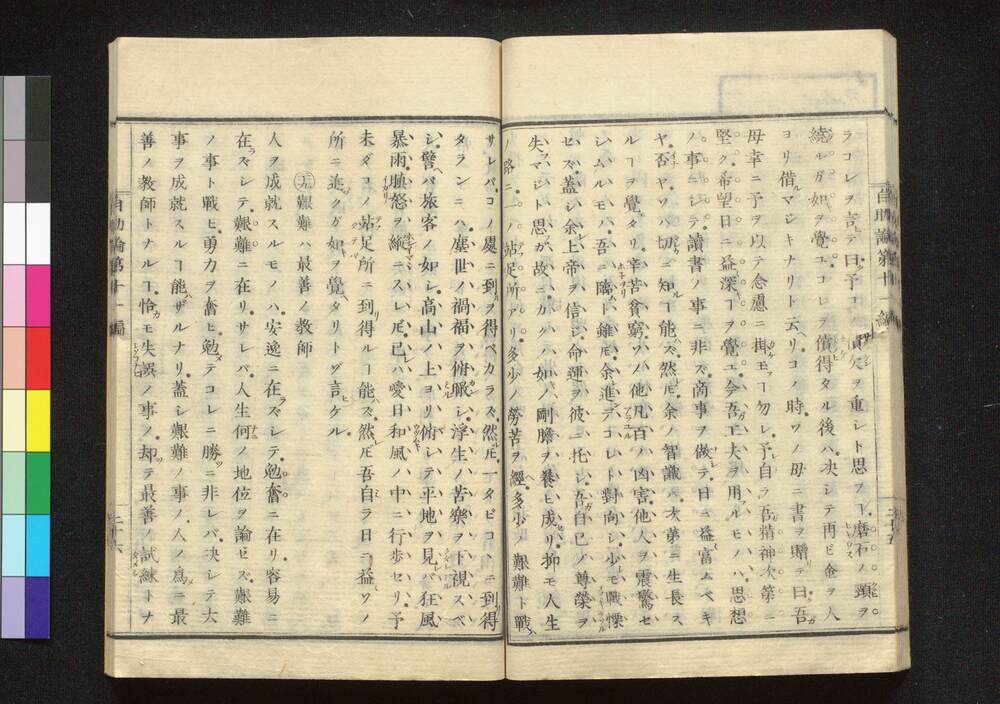 ラコレヲ言テ曰予コノ負欠ヲ重シト思フヿ磨石ノ頸ヲ
繞ルガ如ヲ覺エコレヲ償得タル後ハ决シテ再ビ金ヲ人
ヨリ借マジキナリト云リコノ時ソノ母ニ書ヲ贈テ曰吾
母幸ニ予ヲ以テ念慮ニ掛モフヿ勿レ予自ラ吾精神次第ニ
堅ク希望日ニ益深ヿヲ覺ユ今吾工夫ヲ用ルモノハ思想
ノ事ニシテ讀書ノ事ニ非ズ商事ヲ做テ日ニ益富ムベキ
ヤ否ヤソハ切ニ知ヿ能ハズ然レ𪜈余ノ智識ハ次第ニ生長ス
ルヿヲ覺タリ辛苦貧窮ソノ他凡百ノ凶害他人ヲ震驚セ
シムルモノハ吾ニ隣ト雖𪜈余進デコレト對向シ少モ戰慄
セズ蓋シ余上帝ヲ信ジ命運ヲ彼ニ托シ吾自己ノ尊榮ヲ
失マジト思ガ故ニカクハ如ノ剛膽ヲ養ヒ成リ抑モ人生
ノ路ニ一ノ站足所アリ多少ノ勞苦ヲ經多少ノ艱難ト戰
自助論第十一編
二十五
サレバコノ處ニ到ヲ得ベカラズ然𪜈一タビコヽニ到得
タランニハ塵世ノ禍福ヲ俯瞰シ浮生ノ苦樂ヲ下視スベ
シ譬バ旅客ノ如シ高山ノ上ヨリ俯シテ平地ヲ見バ狂風
暴雨嗔怒ヲ縱ニスレ𪜈己ハ愛日和風ノ中ニ行歩セリ予
未ダコノ站足所ニ到得ルヿ能ハズ然𪜈吾自ラ日ニ益ソノ
所ニ進ムガ如ヲ覺タリトゾ言ケル
艱難ハ最善ノ教師
人ヲ成就スルモノハ安逸ニ在ラズシテ勉奮ニ在リ容易ニ
在ズシテ艱難ニ在リサレバ人生何ノ地位ヲ論ゼズ艱難
ノ事ト戰ヒ勇力ヲ奮ヒ勉テコレニ勝ツニ非レバ决シテ大
事ヲ成就スルヿ能ザルナリ蓋シ艱難ノ事ノ人ノ爲ニ最
善ノ教師トナルヿ恰モ失誤ノ事ノ却テ最善ノ試練トナ
自助論第十一編
二十六